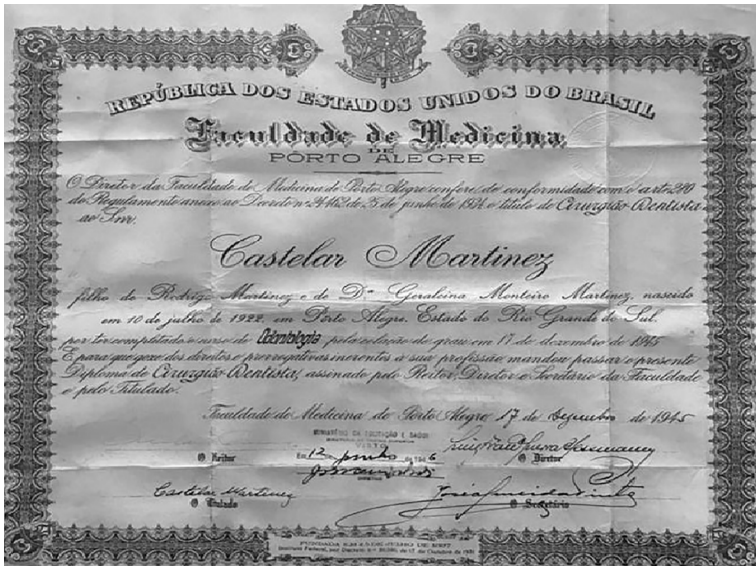 REPÚBLICA DOS ESTADOS UNIDOS DO BRASIL
Faculdade de Medicina
DE
PÔRTO ALEGRE
O Diretor da Faculdade de Medicina de Porto Alegre confere, de conformidade com o art.
do Regulamento anexo ao Decreto nº 24.462 de 25 de junho de 1934 o titulo de Cirurgião-Dentista
ao Snr.
Castelar Martinez
filho de Rodrigo Martinez e de Dª Geralcina Monteiro Martinez, nascido
em 10 de julho de 1922, em Pôrto Alegre, Estado do Rio Grande do Sul,
por ter completado o curso de Odontologia pela colação de grau em 17 de dezembro de 1945
E para que goze dos direitos e prerrogativas inerentes à sua profissão mandou passar o presente
Diploma de Cirurgião-Dentista, assinado pelo Reitor, Diretor e Secretário da Faculdade
e pelo Titulado.
Faculdade de Medicina de Porto Alegre, 17 de Dezembro de 1945
MINISTÉRIO DA EDUCAÇÃO E SAÚDE
VISTO
Em 12 de junho de 1946
O Reitor
O Diretor
Castelar Martinez
O Titulado
O Secretário